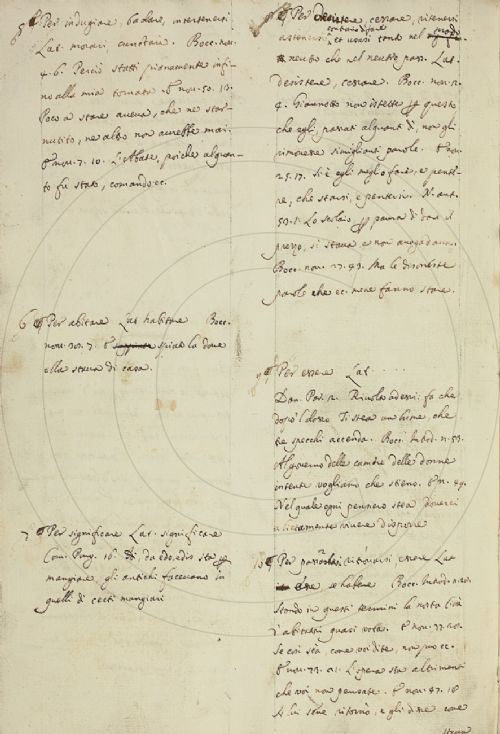 5 ¶ Per indugiare, badare, intertenersi
Lat. morari, cunctare. Bocc. nov.
4. 6. Perciò statti pianamente infi-
no alla mia tornata. E nov. 50. 13.
Poco a stare aveva, che ne star-
nutito, ne altro non avrebbe mai.
E nov. 7. 10. L'Abate, poiche alquan-
to fu stato, comandò ec.
6 ¶ Per abitare Lat. habitare Bocc.
nov. 7. E spiato la dove
ella stava di casa.
7 ¶ Per significare Lat. significare
Com. Purg. 16. da edo, edis sta per
mangiare, gli antichi facevano in
quelli di certi mangiari
¶ Per desistere, cessare, ritenersi
astenersi, et usasi tanto nel
neutro che nel neutro pass. Lat.
desistere, cessare. Bocc. nov. 2.
4. Giannotto non istette per questo
che egli, passati alquanti dì, non gli
rimovesse simiglianti parole. E nov.
25. 17. Si è egli meglio fare, e penti-
re, che starsi, e pentersi. N. ant.
Lo scolaio per paura di dare il
prezzo, si stava e non avogadava.
Bocc. nov. 27. 43. Ma le disoneste
parole che ec. mene fanno stare.
9 ¶ Per essere Lat. . . . .
Dan. Par. 2. Rivolto ad essi: fa che
dopo 'l dosso Ti stea un lume, che
tre specchi accenda. Bocc. Introd. n. 53.
Al governo delle camere delle donne
intente vogliamo che stieno. E n. 49.
Nel quale ogni pensiero stea
lietamente vivere disporre
10 ¶ Per ritrovarsi, essere Lat.
se habere Bocc. Introd. n.
Stando in questi termini la nostra Città
d'abitatori quasi vota. E nov. 77.
Se così stà, come voi dite, non può ec.
E nov. 73. 21. L'opera sta altrimenti
che voi non pensate. E nov. 47. 18
A lui sene ritornò, e gli disse come